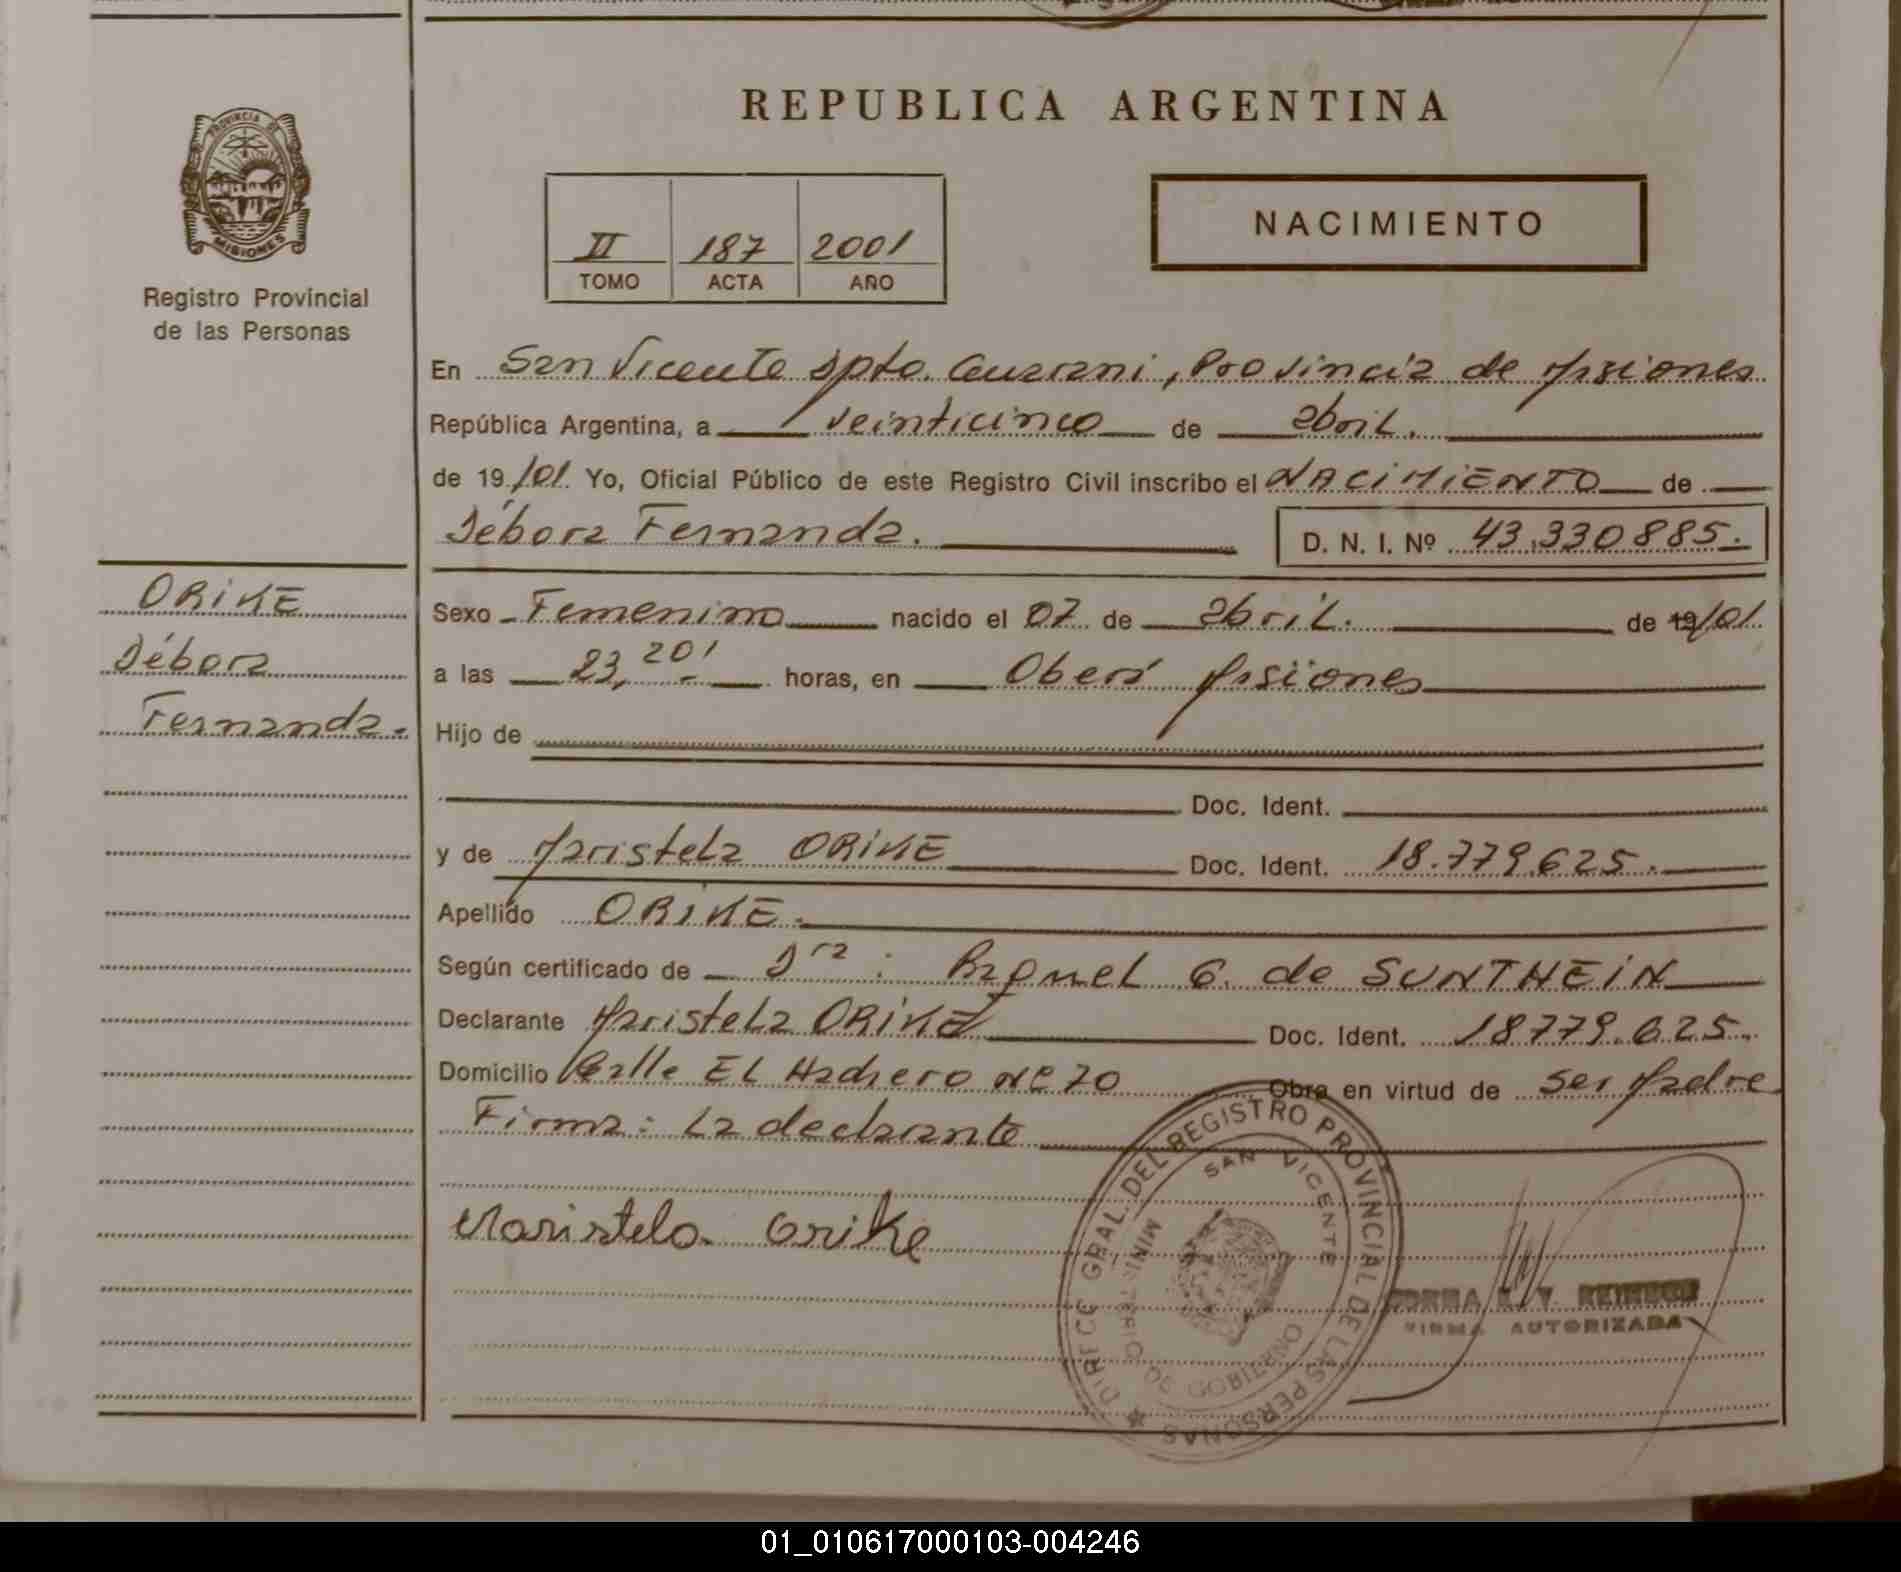 REPUBLICA ARGENTINA
PROVINCIA DE
MISIONES
Registro Provincial
de las Personas
II 187 2001
TOMO ACTA AÑO
NACIMIENTO
En San Vicente Dpto. Guarani, Provincia de Misiones
República Argentina, a veinticinco de abril.
de 19/01. Yo, Oficial Público de este Registro Civil inscribo el NACIMIENTO de
Débora Fernanda.
D. N. I. Nº 43.330885.
ORIKE
Débora
Fernanda.
Sexo Femenino nacido el 07 de abril. de 19/01.
a las 23,20' horas, en Oberá Misiones
Hijo de
Doc. Ident.
y de Maristela ORIKE Doc. Ident. 18.779.625.
Apellido ORIKE.
Según certificado de Dra: Raquel G. de SUNTHEIN
Declarante Maristela ORIKE Doc. Ident. 18779.625.
Domicilio Calle EL Hachero Nº 70 Obra en virtud de ser Madre
Firma: La declarante
Maristela Orike
DIRECC GRAL. DEL REGISTRO PROVINCIAL DE LAS PERSONAS
SAN VICENTE
MINISTERIO DE GOBIERNO
FIRMA AUTORIZADA
01_010617000103-004246